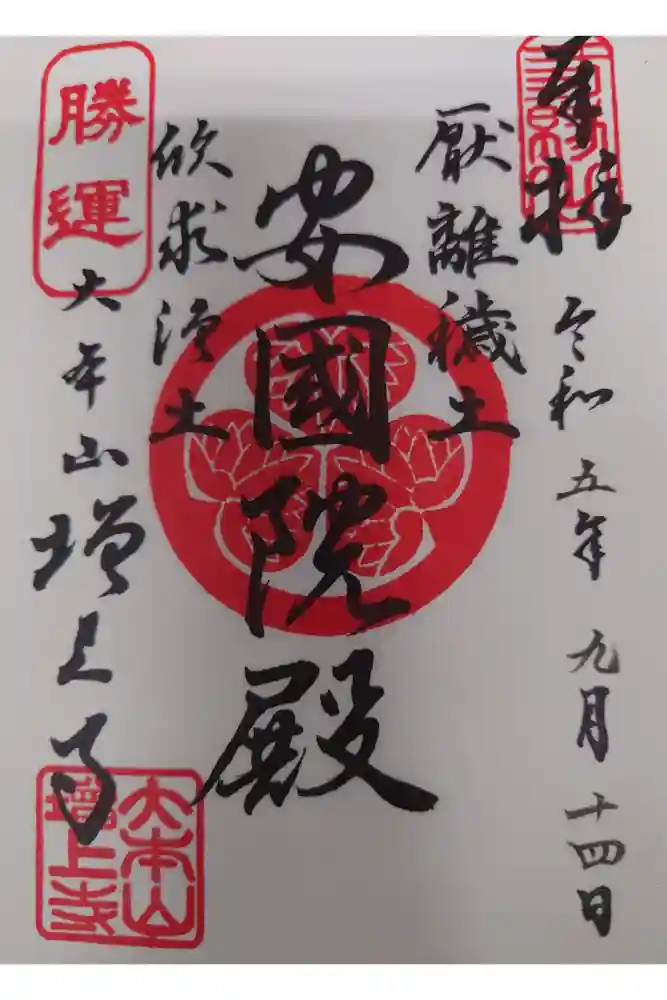 奉拝
令和五年 九月 十四日
厭離穢土
安國院殿
欣求浄土
勝運
大本山 増上寺
大本山
増上寺